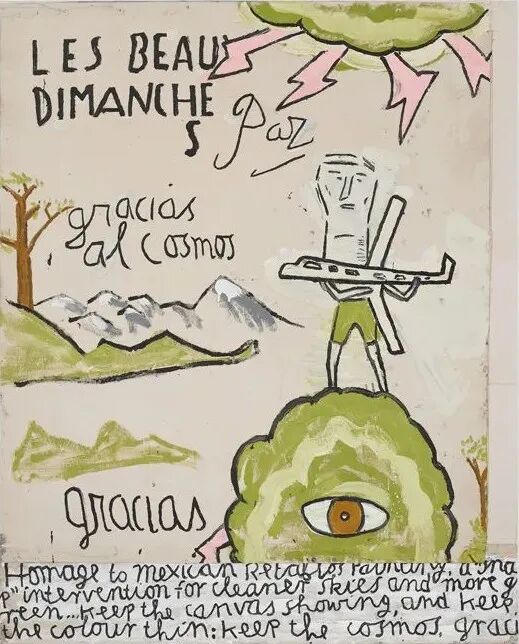 LES BEAU
DIMANCHE
S
Paz
gracias
al cosmos
gracias
Homage to mexican Retablos Painting, a sna
p" intervention for cleaner skies and more g
reen...keep the canvas showing, and keep
the colour thin: keep the cosmos graci